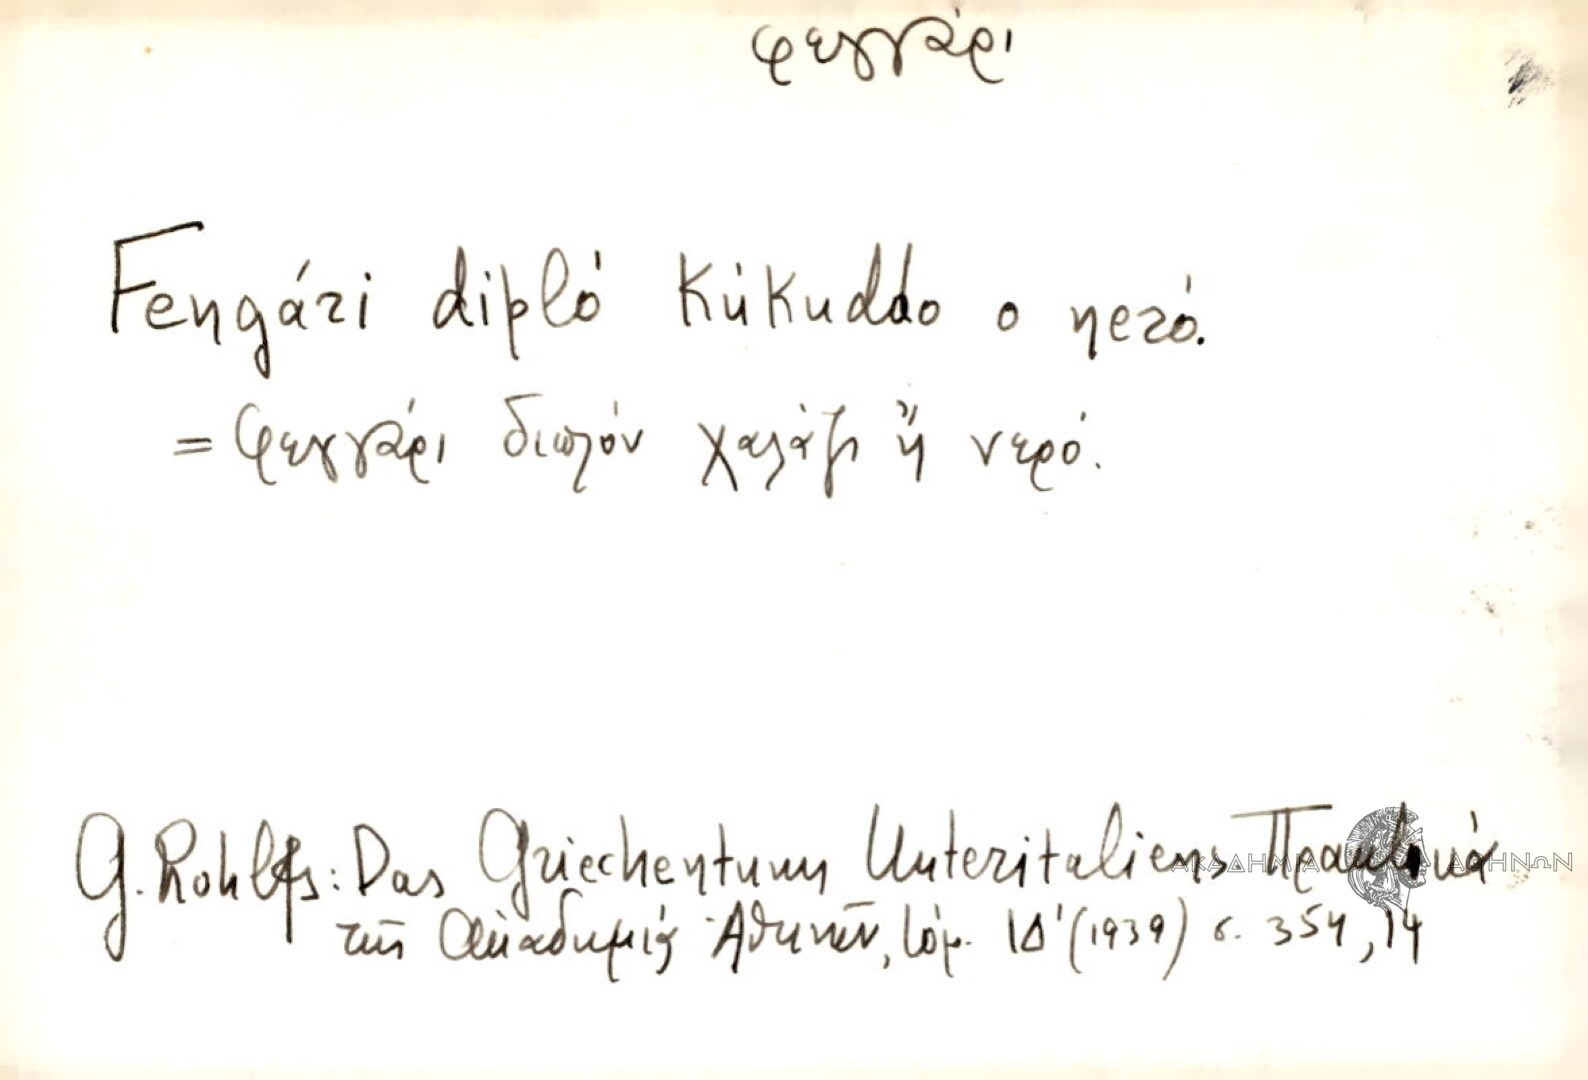 φεγγάρι
Fengári dipló kúkuddo o neró.
= Φεγγάρι διπλόν χαλάζι ἤ νερό.
G. Rohlfs: Das Griechentum Unteritaliens. Πρακτικά
τῆς Ἀκαδημίας Ἀθηνῶν, τόμ. ΙΔ' (1939) σ. 354, 14
ΑΚΑΔΗΜΙΑ ΑΘΗΝΩΝ